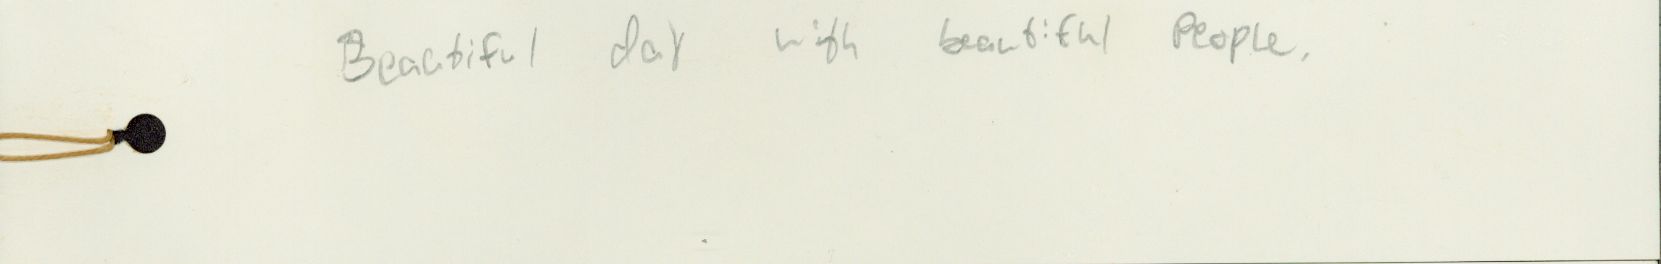 Beautiful day with beautiful People.